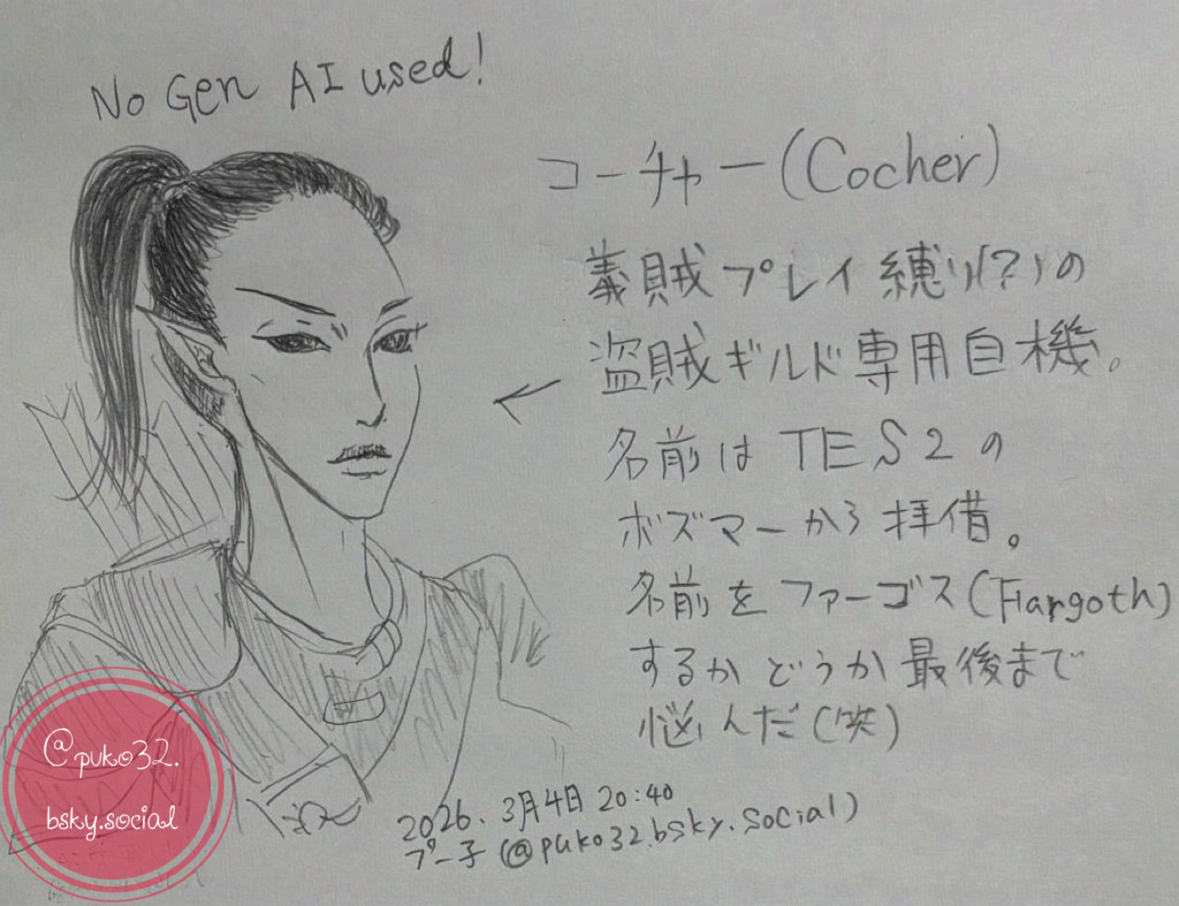 No Gen AI used!
コーチャー(Cocher)
義賊プレイ縛り(?)の
盗賊ギルド専用自機。
名前はTES2の
ボズマーから拝借。
名前をファーゴス(Fargoth)
するかどうか最後まで
悩んだ(笑)
2026.3月4日 20:40
プー子(@puko32.bsky.social)
@puko32.
bsky.social